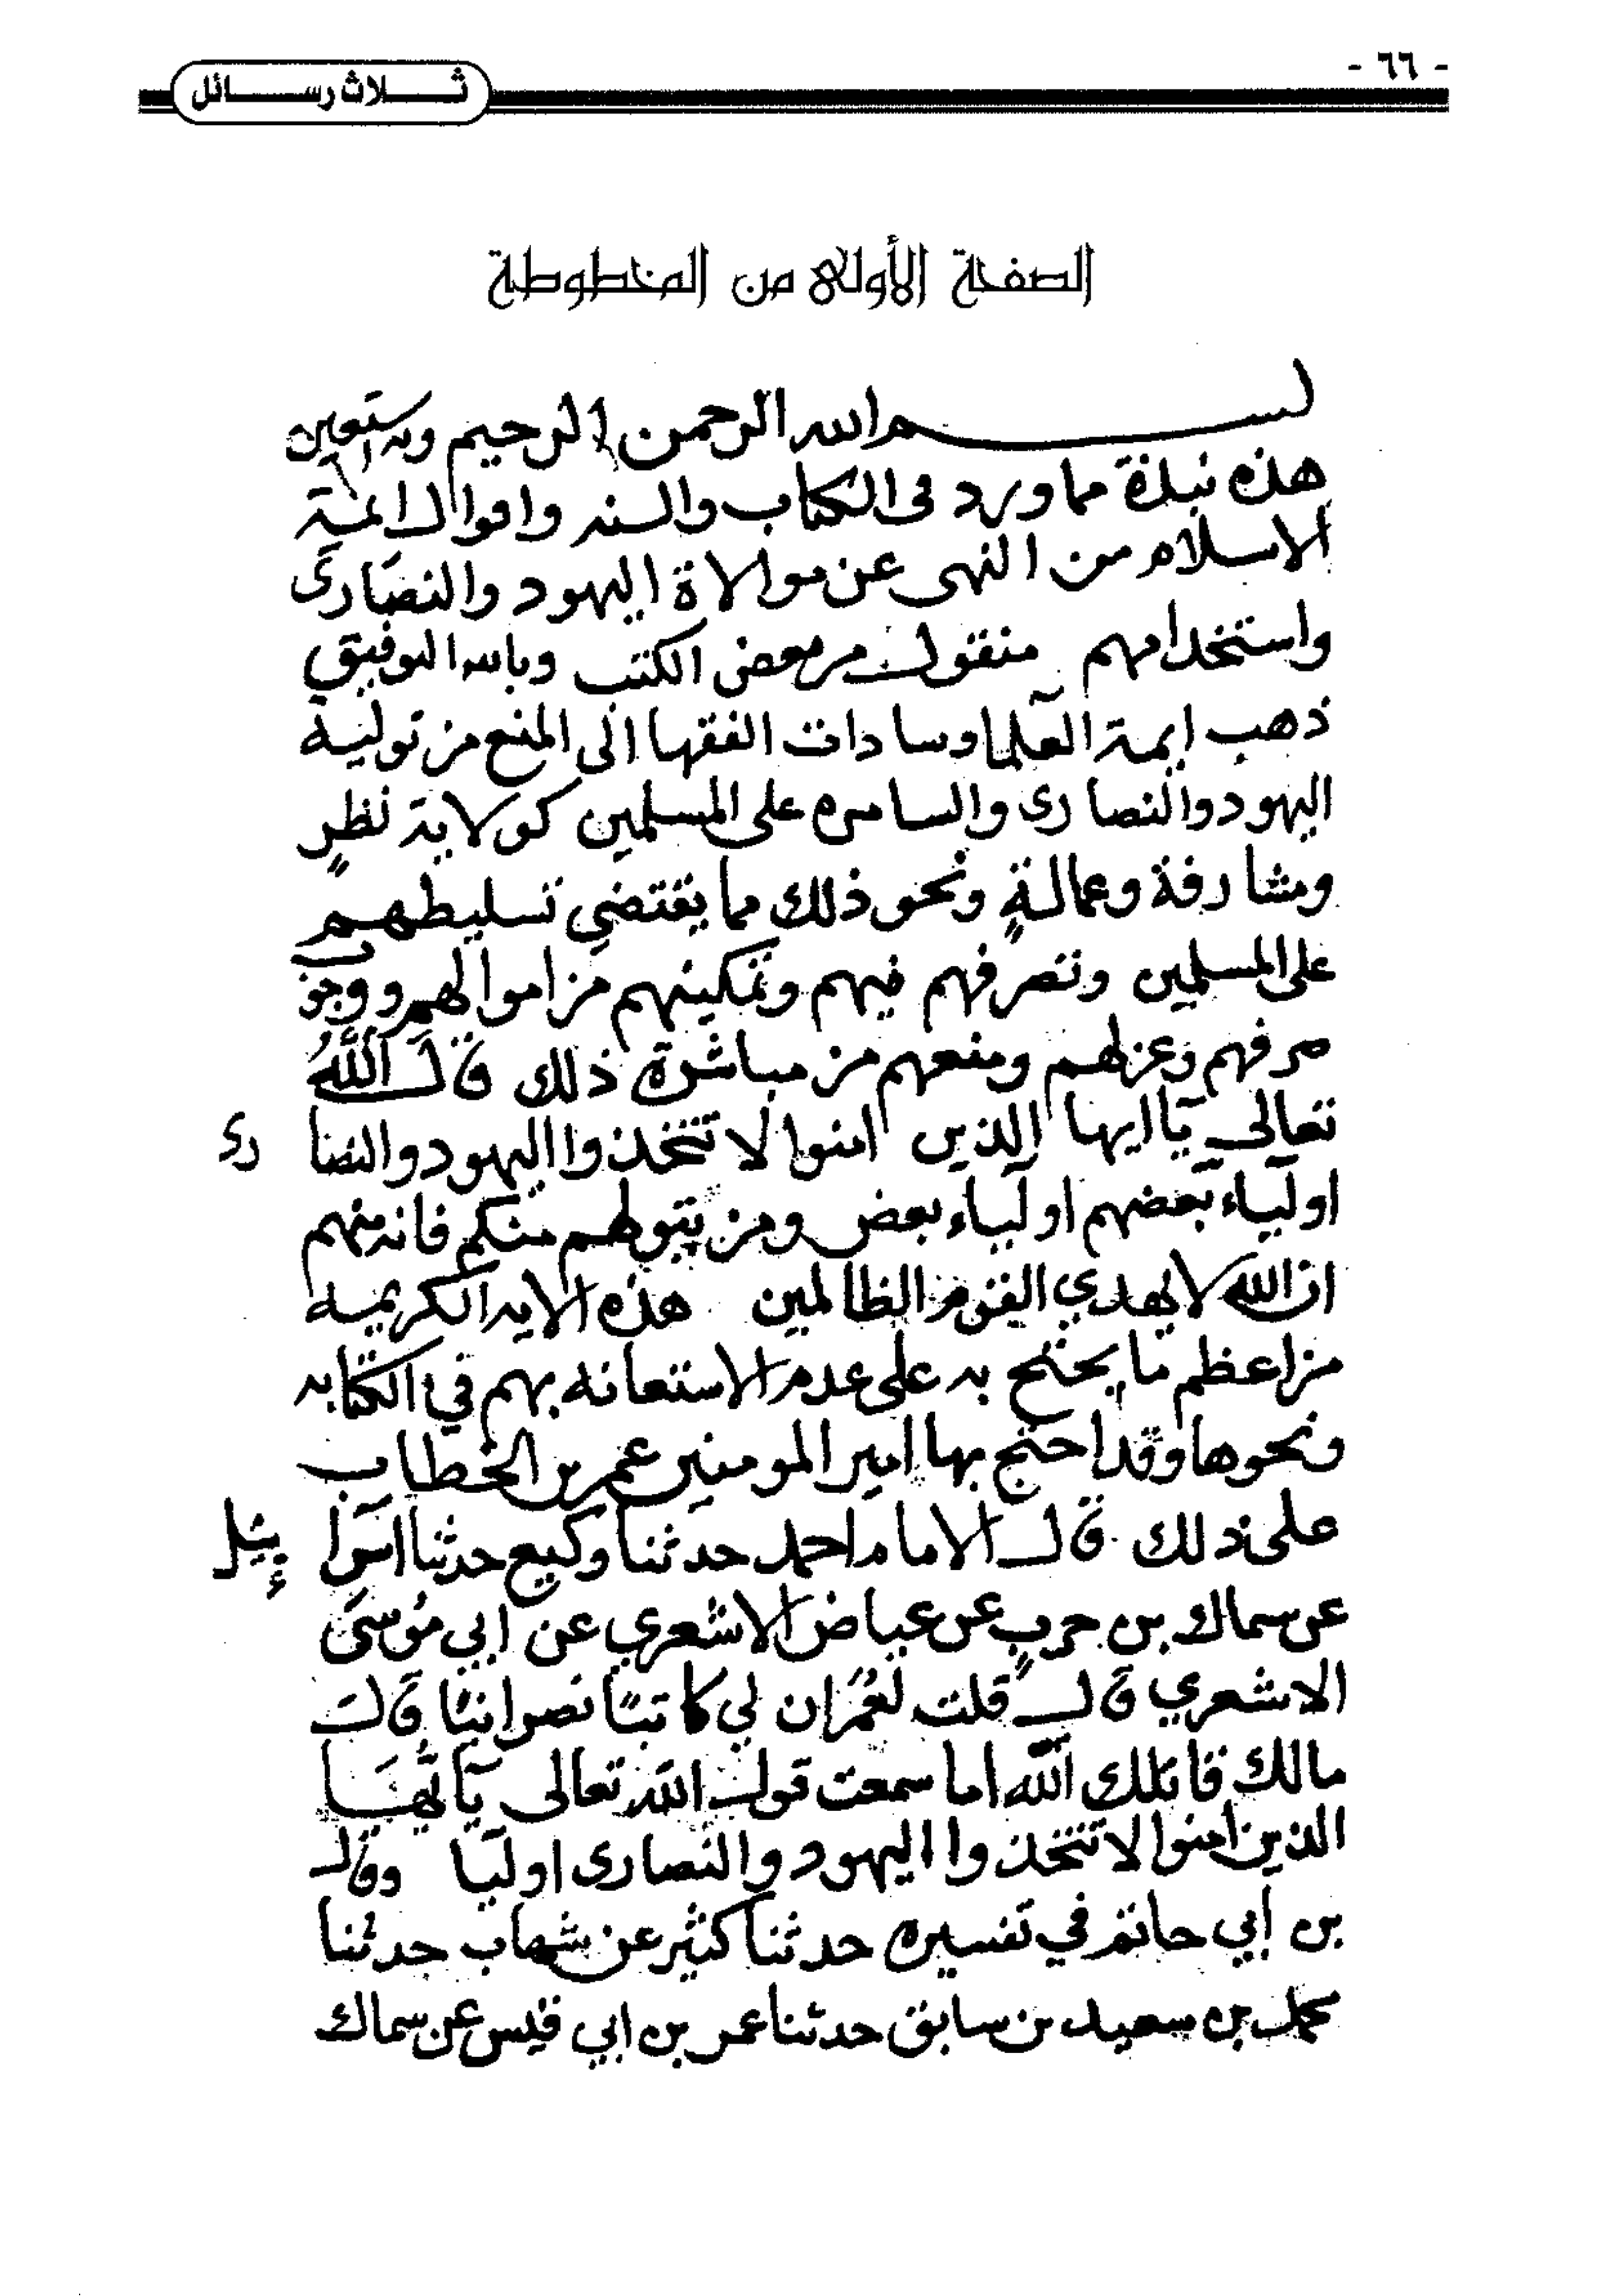 - ٦٦ -
ثـــلاث رســـائل
الصفحة الأولى من المخطوطة
بسم الله الرحمن الرحيم وبه استعين
هذه نبذة مما ورد فى الكتاب والسنه واقوال ائمة
الاسلام من النهى عن موالاة اليهود والنصارى
واستخدامهم منقول من بعض الكتب وبالله التوفيق
ذهب ايمة العلما وسادات الفقها الى المنع من تولية
اليهود والنصارى والسامره على المسلمين كولاية نظرٍ
ومشارفة وعمالةٍ ونحو ذلك مما يقتضي تسليطهم
على المسلمين وتصرفهم فيهم وتمكينهم من اموالهم ووجوب
صرفهم وعزلهم ومنعهم من مباشرة ذلك قال اللهُ
تعالى يآ ايها الذين امنوا لا تتخذوا اليهود والنصارى
اوليآء بعضهم اوليآء بعض ومن يتولهم منكم فانه منهم
ان الله لا يهدي القوم الظالمين هذه الايه الكريمة
من اعظم ما يحتج به على عدم الاستعانه بهم في الكتابه
ونحوها وقد احتج بها امير المومنين عمر بن الخطاب
على ذلك قال الامام احمد حدثنا وكيع حدثنا اسرائيل
عن سماك بن حربٍ عن عياض الاشعري عن ابي موسى
الاشعري قال قلت لعُمَر ان لي كاتبًا نصرانيًا قال
مالك قاتلك الله اما سمعت قول الله تعالى يآ ايُّهَا
الذين امنوا لا تتخذوا اليهود والنصارى اوليا وقال
بن أبي حاتم في تفسيره حدثنا كثير عن شهاب حدثنا
محمد بن سعيد بن سابق حدثنا عمر بن ابي قيس عن سماك